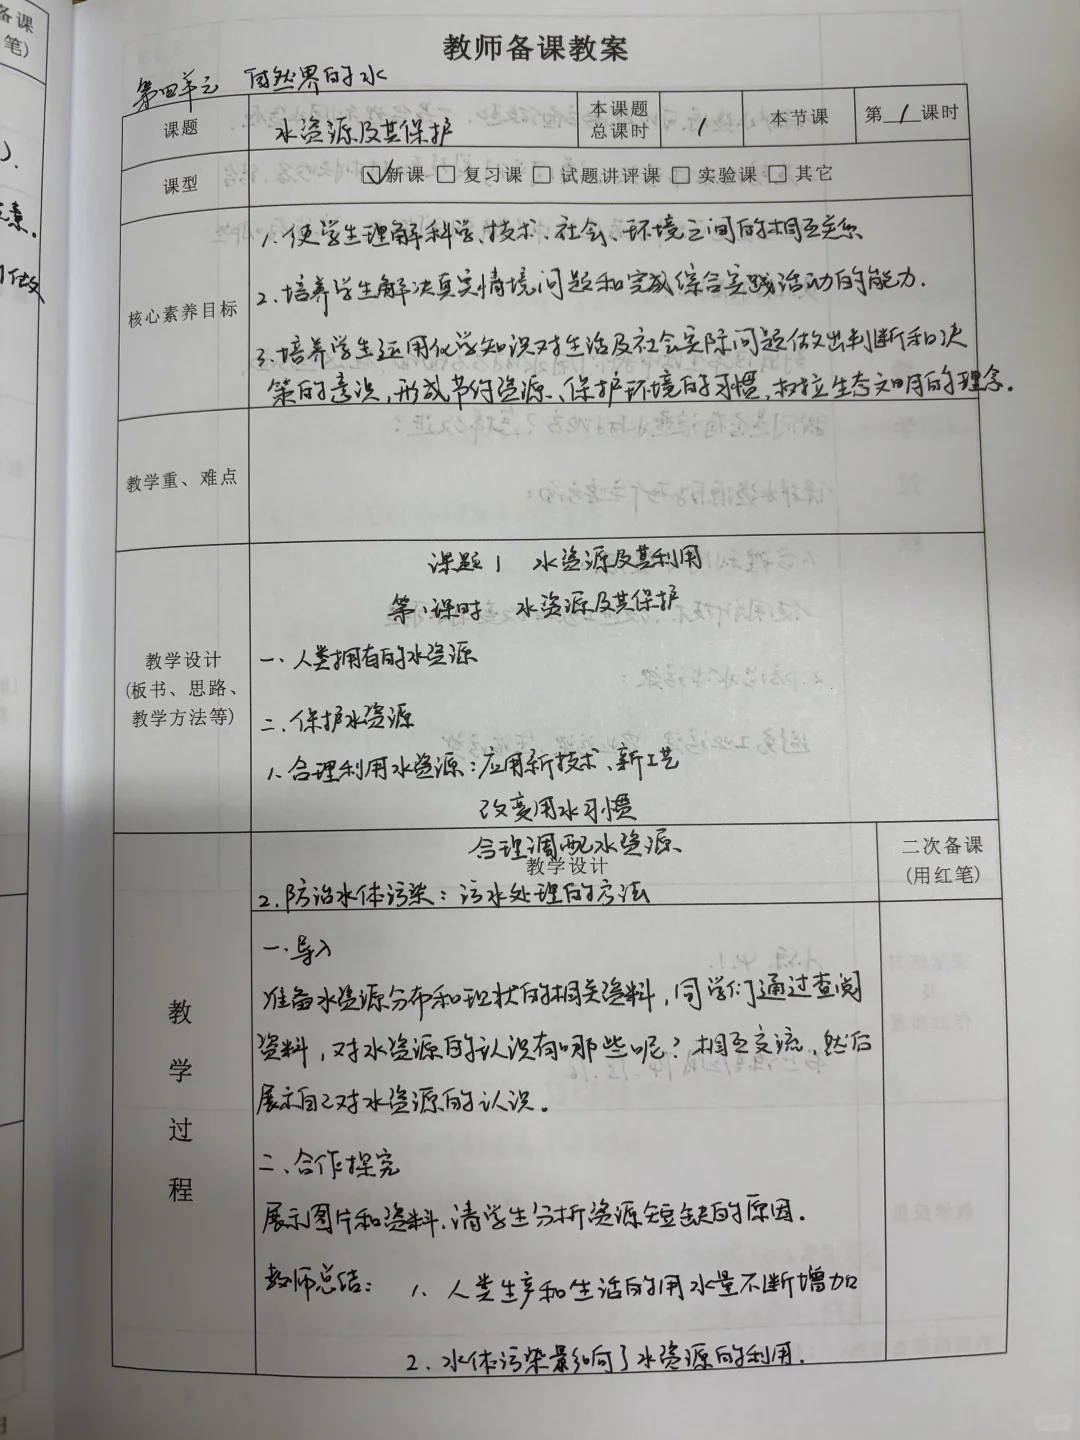 备课
笔)
教师备课教案
第四单元 自然界的水
课题
水资源及其保护
本课题
总课时
1
本节课
第 1 课时
课型
☑新课 □复习课 □试题讲评课 □实验课 □其它
核心素养目标
1. 使学生理解科学、技术、社会、环境之间的相互关系
2. 培养学生解决真实情境问题和完成综合实践活动的能力.
3. 培养学生运用化学知识对生活及社会实际问题做出判断和决
策的意识,形成节约资源、保护环境的习惯,树立生态文明的理念.
教学重、难点
教学设计
(板书、思路、
教学方法等)
课题1 水资源及其利用
第1课时 水资源及其保护
一. 人类拥有的水资源
二. 保护水资源
1. 合理利用水资源:应用新技术、新工艺
改变用水习惯
合理调配水资源、
教学设计
二次备课
(用红笔)
2. 防治水体污染:污水处理的方法
教学过程
一. 导入
准备水资源分布和现状的相关资料,同学们通过查阅
资料,对水资源的认识有哪些呢?相互交流,然后
展示自己对水资源的认识。
二、合作探究
展示图片和资料,请学生分析资源短缺的原因.
教师总结: 1. 人类生产和生活的用水量不断增加
2. 水体污染影响了水资源的利用.